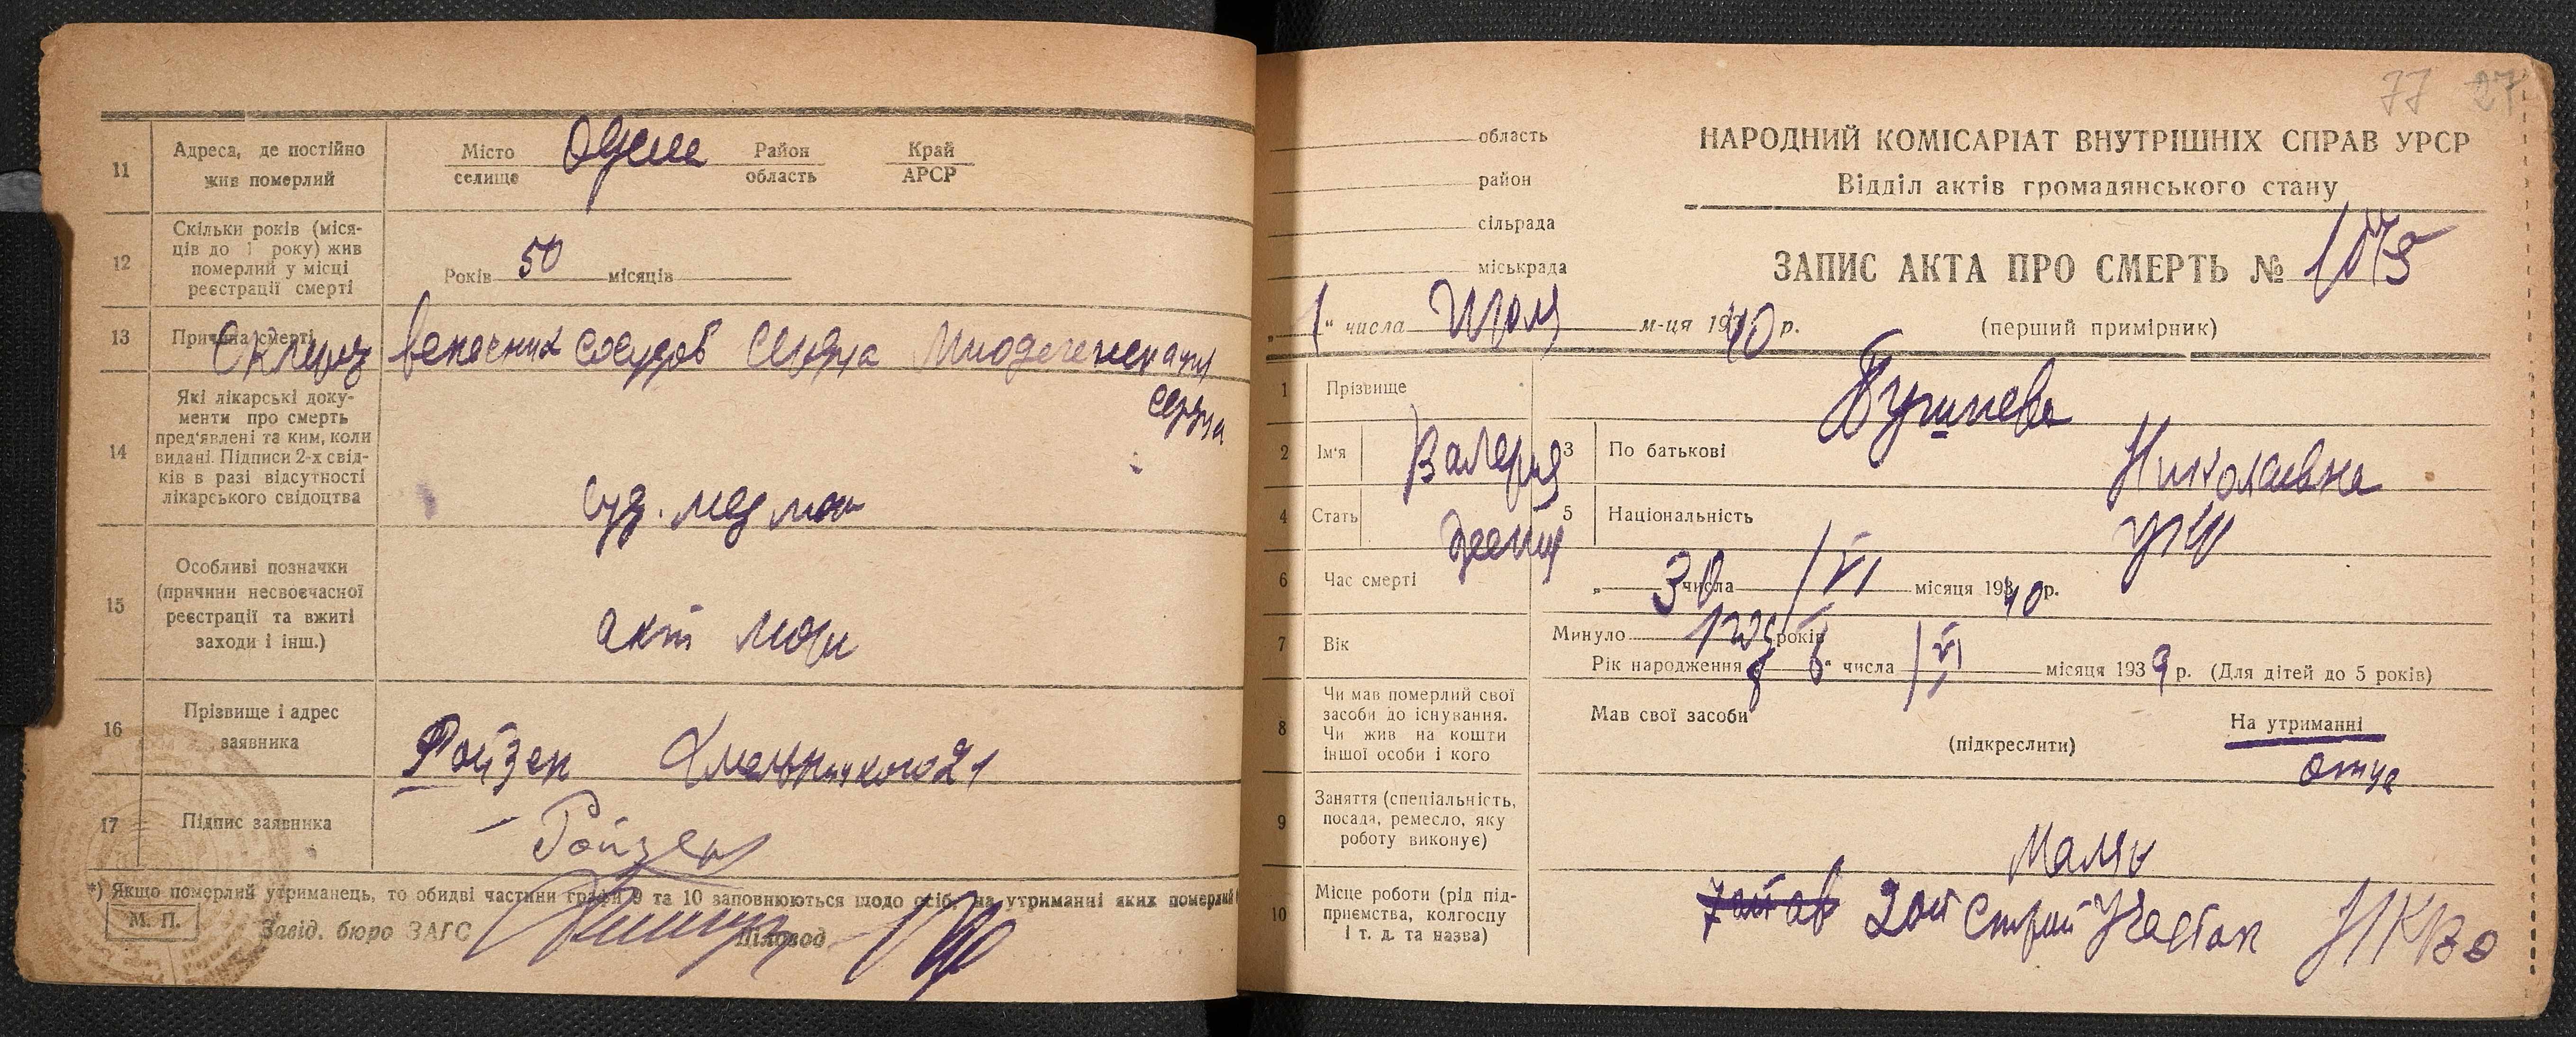 11 Адреса, де постійно жив померлий
Місто селище Одесе Район область Край АРСР
12 Скільки років (місяців до 1 року) жив померлий у місці реєстрації смерті
Років 50 місяців
13 Причина смерті
венечных сосудов сердца Миодегенерация
сердца
14 Які лікарські документи про смерть пред'явлені та ким, коли видані. Підписи 2-х свідків в разі відсутності лікарського свідоцтва
суд. мед
15 Особливі позначки (причини несвоєчасної реєстрації та вжиті заходи і інш.)
акт
16 Прізвище і адрес заявника
Ройзен Хмельницкого 21
17 Підпис заявника
Ройзен
*) Якщо померлий утриманець, то обидві частини графи 9 та 10 заповнюються щодо осіб, на утриманні яких померлий
М. П.
Завід. бюро ЗАГС Діловод
77 27
область
район
сільрада
міськрада
НАРОДНИЙ КОМІСАРІАТ ВНУТРІШНІХ СПРАВ УРСР
Відділ актів громадянського стану
ЗАПИС АКТА ПРО СМЕРТЬ №
„1“ числа Июля м-ця 1940 р.
(перший примірник)
1 Прізвище
2 Ім'я Валерия 3 По батькові Николаевна
4 Стать 5 Національність укр
6 Час смерті „30 числа VI місяця 1940 р.
7 Вік Минуло 1 год років
Рік народження 8“ числа VI місяця 1939 р. (Для дітей до 5 років)
8 Чи мав померлий свої засоби до існування. Чи жив на кошти іншої особи і кого
Мав свої засоби (підкреслити) На утриманні
отца
9 Заняття (спеціальність, посада, ремесло, яку роботу виконує)
Маляр
10 Місце роботи (рід підприємства, колгоспу і т. д. та назва)
2ой Строй Участок НКВД